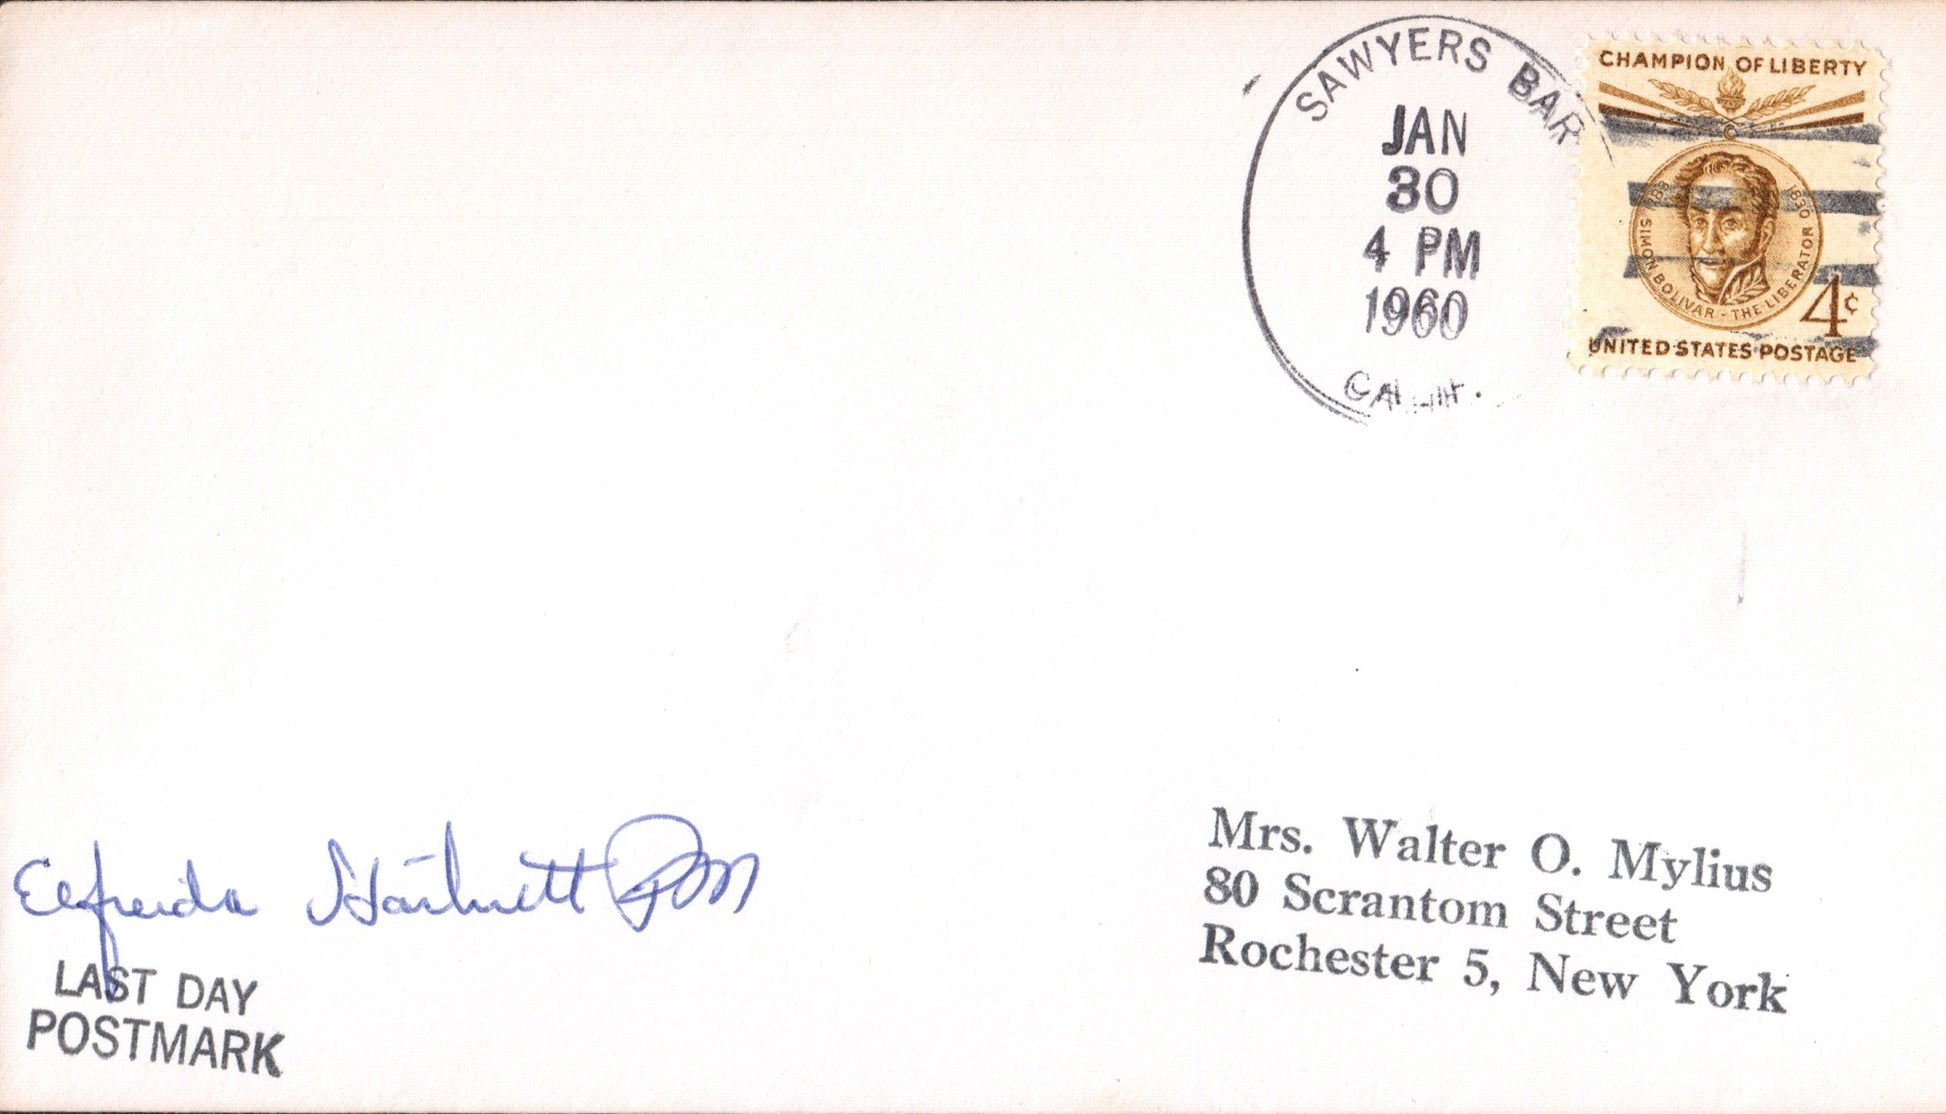 SAWYERS BAR
JAN
30
4 PM
1960
CHAMPION OF LIBERTY
1830
SIMON BOLIVAR - THE LIBERATOR
4¢
UNITED STATES POSTAGE
Elfreida Hartnett PM
LAST DAY
POSTMARK
Mrs. Walter O. Mylius
80 Scrantom Street
Rochester 5, New York